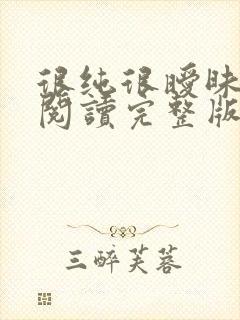 很纯很曖昧
閱讀完整版
三醉芙蓉